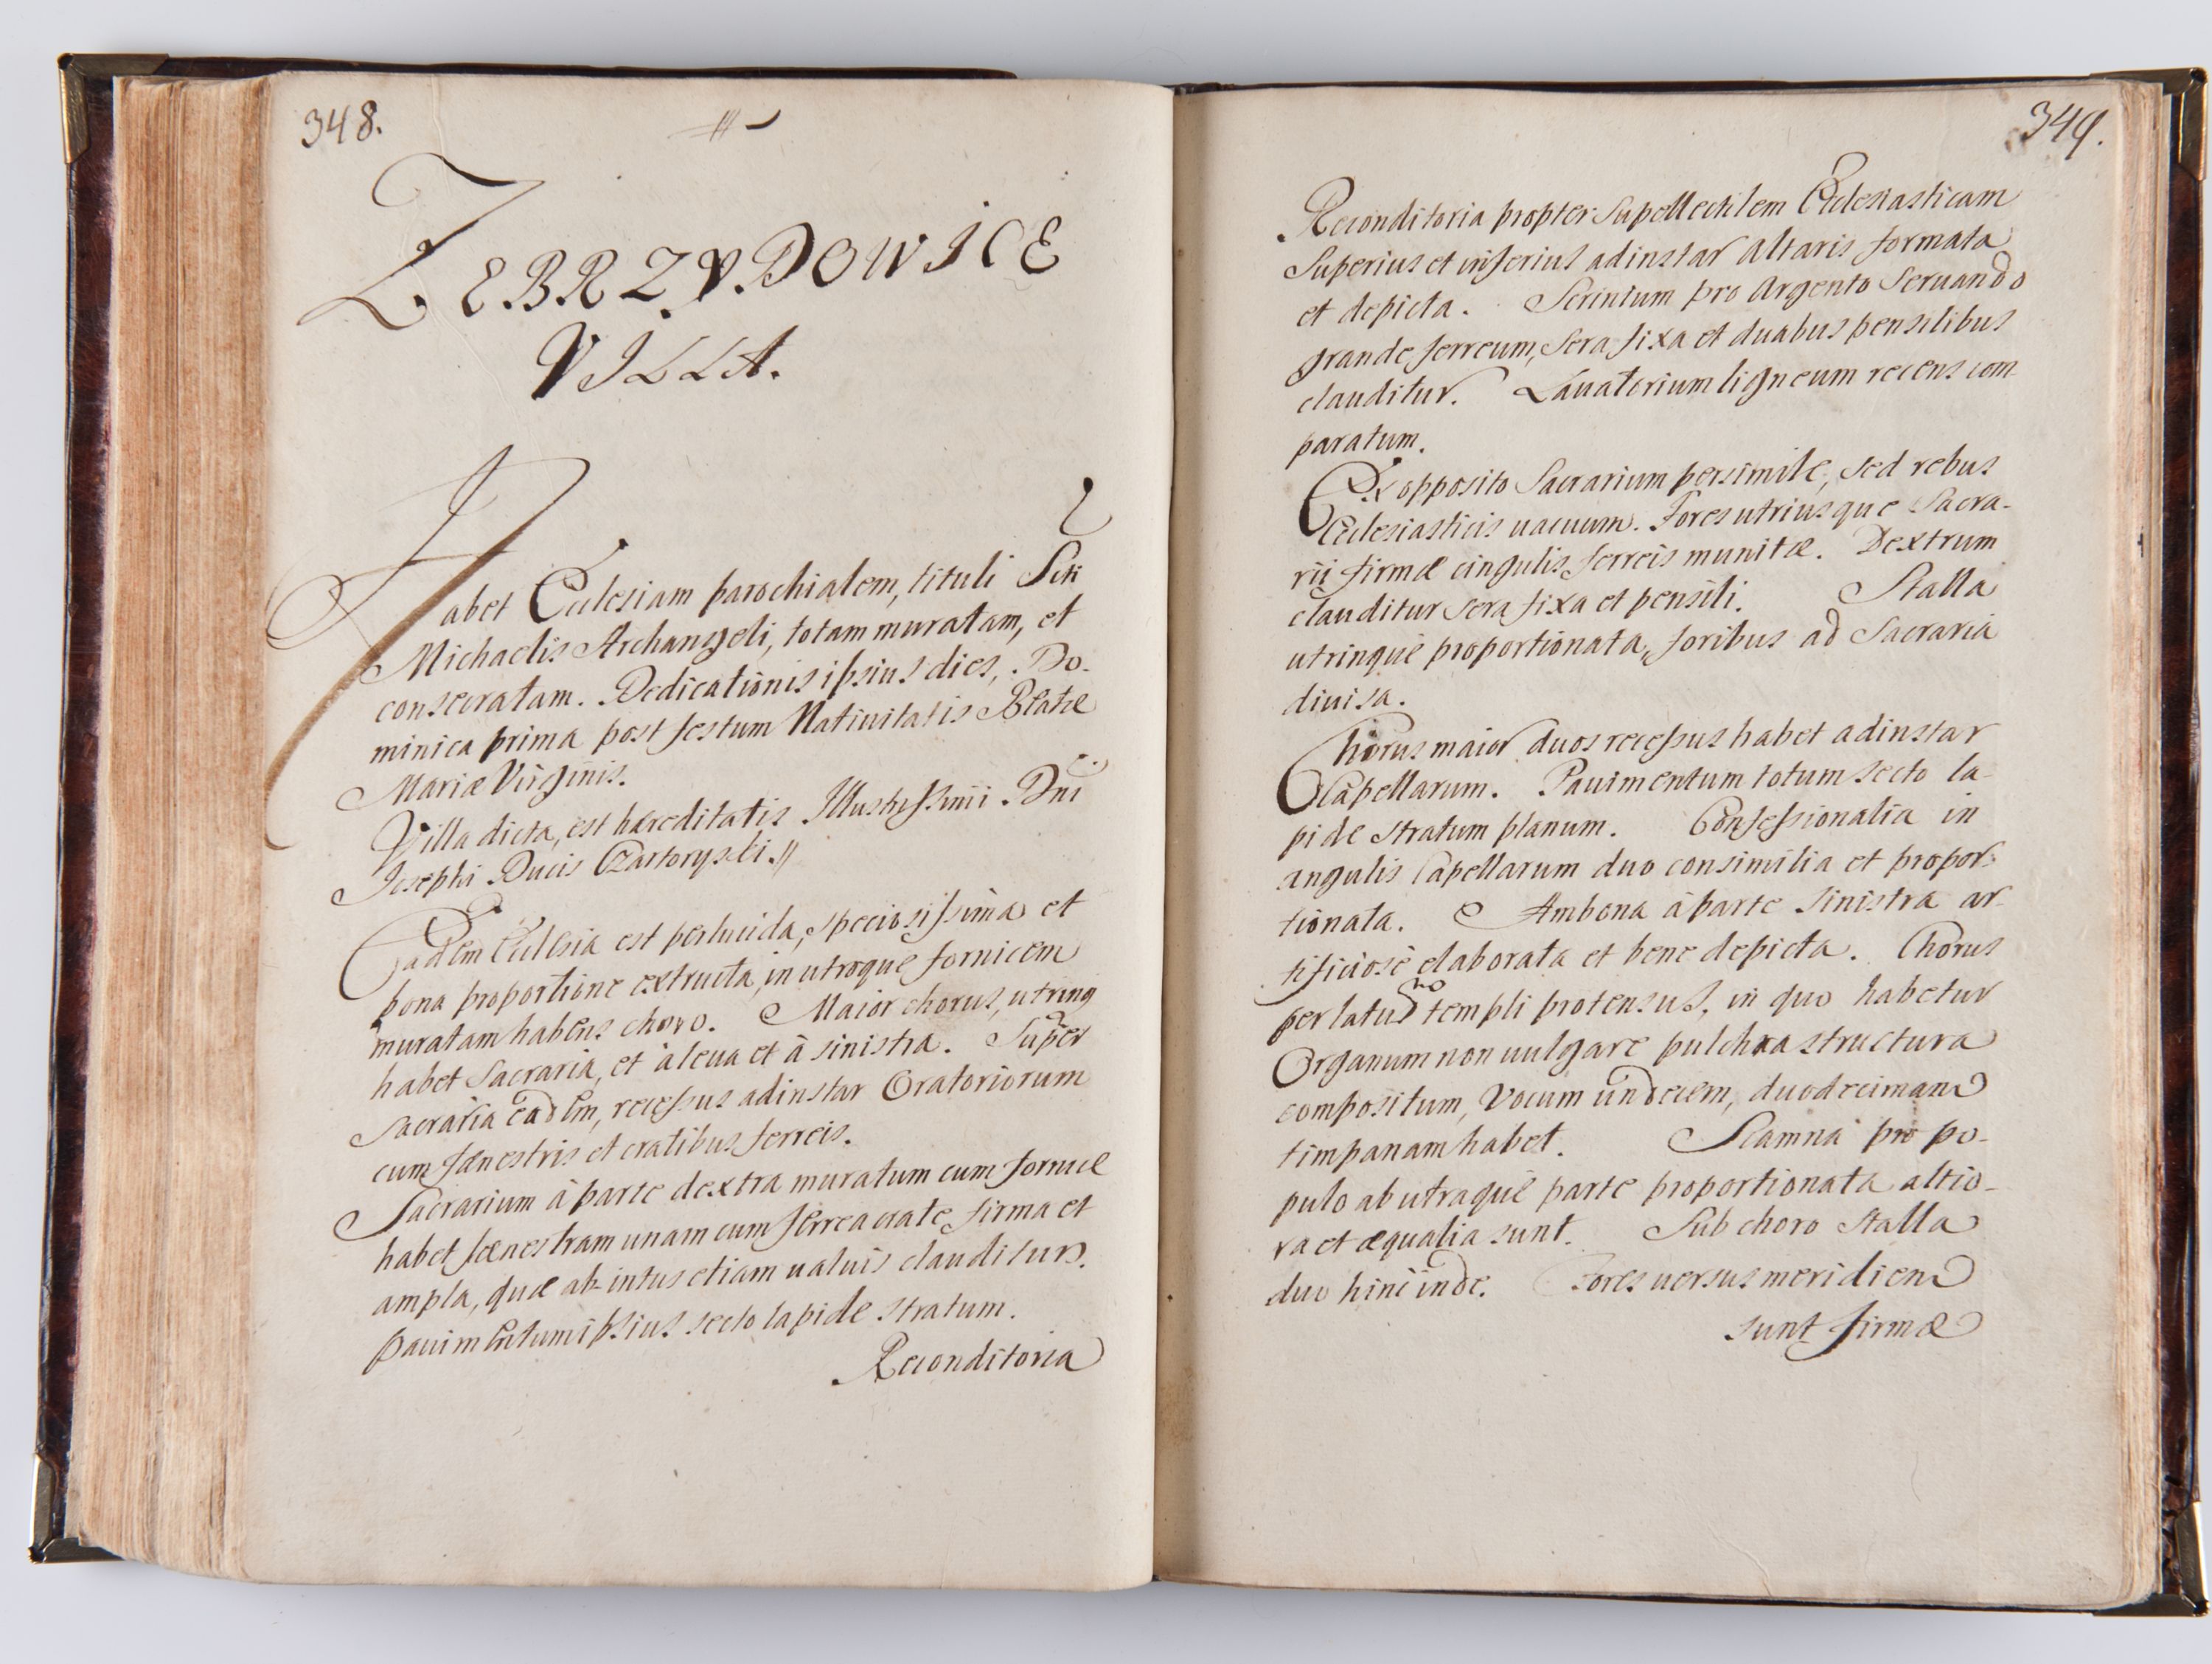 348.
ZEBRZ.Y.DOWICE
VILLA.
Habet Ecclesiam parochialem, tituli Scti
Michaelis Archangeli, totam muratam, et
consecratam. Dedicationis ipsius dies, Do-
minica prima post festum Natiuitatis Beatæ
Mariæ Virginis.
Villa dicta, est hæreditatis Illustrissimi Dni
Josephi Ducis Czartoryski.
Eadem Ecclesia est perlucida, speciosissima et
bona proportione extructa, in utroque fornicem
muratam habens choro. Maior chorus, utrinq
habet Sacraria, et à leua et à sinistra. Super
sacraria eadem, recessus adinstar Oratoriorum
cum fænestris et cratibus ferreis.
Sacrarium à parte dextra muratum cum fornice
habet fænestram unam cum ferrea crate firma et
ampla, quæ ab intus etiam ualuis clauditur.
Pauimentum ipsius secto lapide stratum.
Reconditoria
349.
Reconditoria propter Supellectilem Ecclesiasticam
Superius et inferius adinstar Altaris formata
et depicta. Scrinium pro Argento Seruando
grande ferreum, sera fixa et duabus pensilibus
clauditur. Lauatorium ligneum recens com
paratum.
Ex opposito Sacrarium persimile, sed rebus
Ecclesiasticis uacuum. Fores utriusque Sacra-
rii firmæ cingulis ferreis munitæ. Dextrum
clauditur sera fixa et pensili. Stalla
utrinque proportionata, foribus ad Sacraria
diuisa.
Chorus maior duos recessus habet adinstar
Capellarum. Pauimentum totum secto la-
pide stratum planum. Confessionalia in
angulis Capellarum duo consimilia et propor-
tionata. Ambona à parte sinistra ar-
tificiosè elaborata et bene depicta. Chorus
per latus templi protensus, in quo habetur
Organum non uulgare pulchra structura
compositum, Vocum undecem, duodecimam
timpanam habet. Scamna pro po-
pulo ab utraque parte proportionata altio-
ra et æqualia sunt. Sub choro Stalla
duo hinc inde. Fores uersus meridiem
sunt firmæ